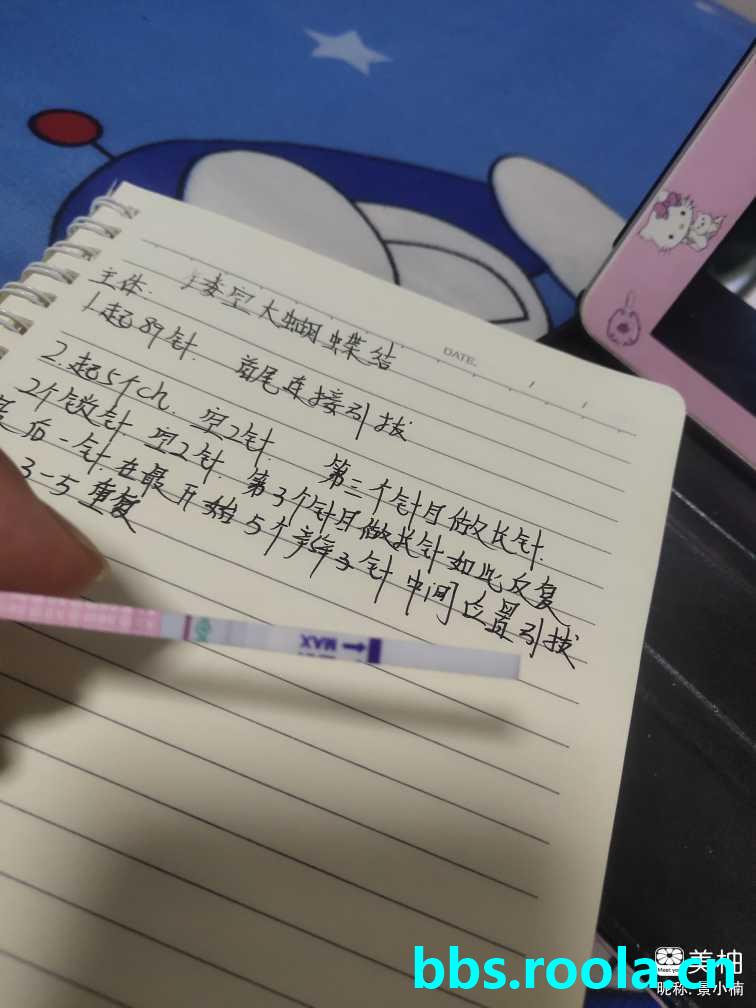 镂空大蝴蝶结
DATE.
主体:
1.起89针. 首尾连接引拔
2.起5个ch. 空2针. 第三个针目做长针.
2个锁针 空2针. 第3个针目做长针如此反复
最后一针.在最开始5个辫子3针中间位置引拔
3-5重复
MAX
美柚
Meet you
昵称: 景小楠
bbs.roola.cn